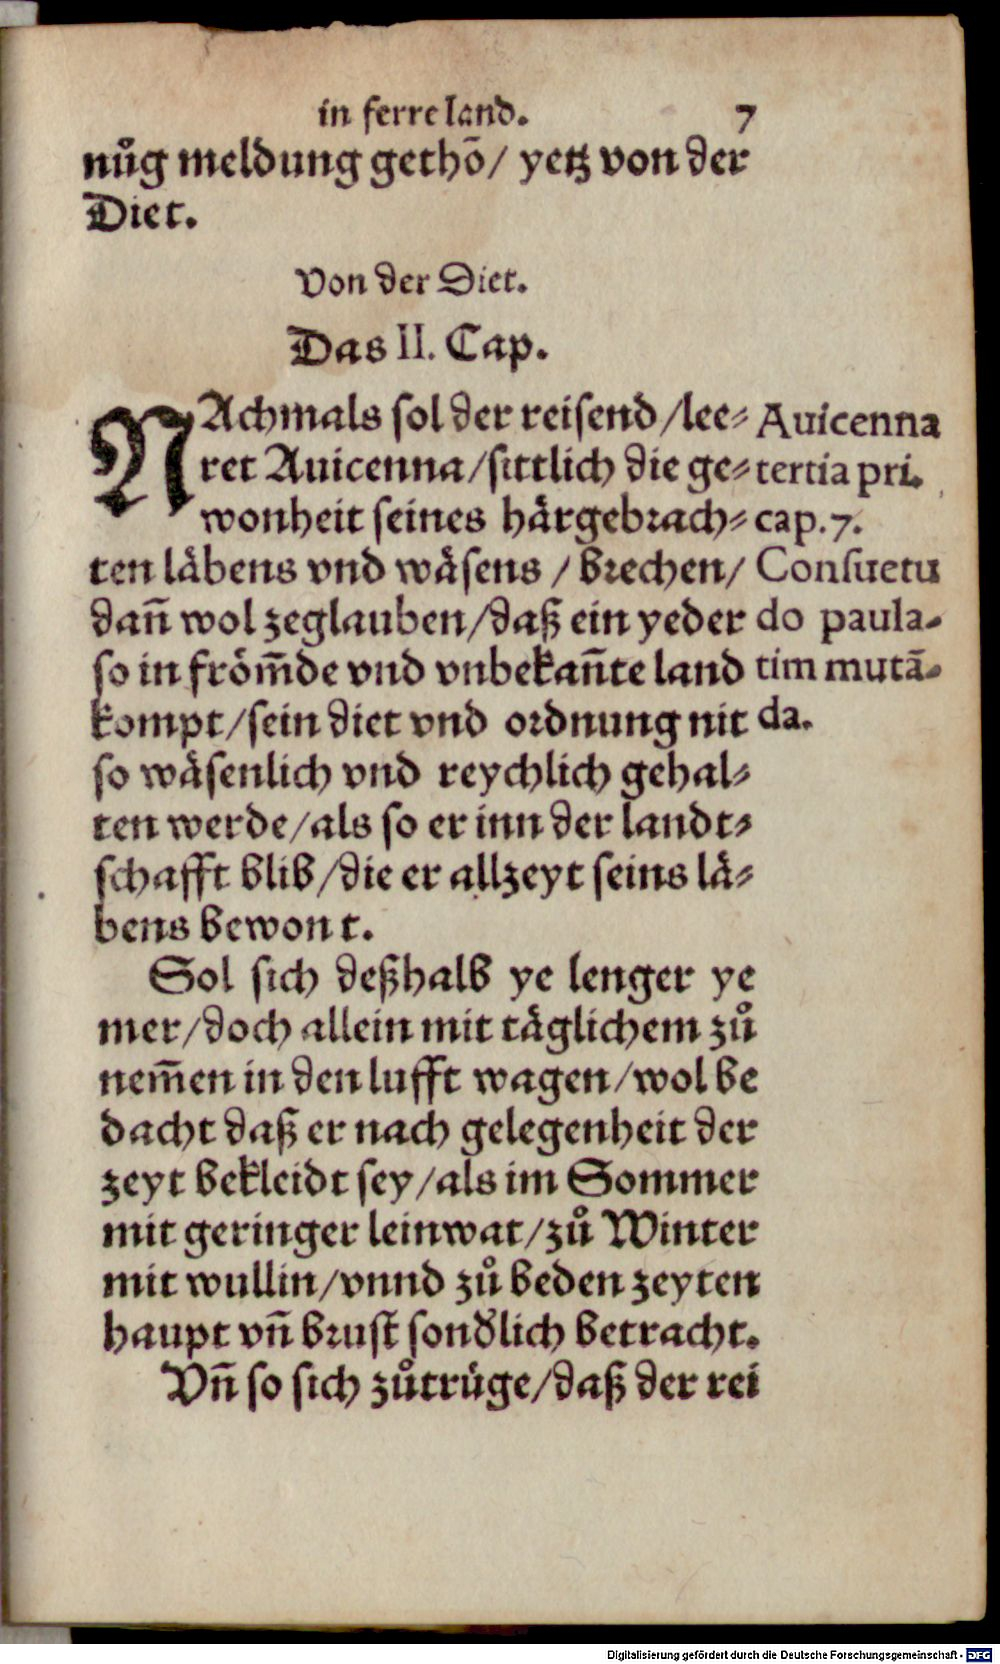 in ferre land. 7
nůg meldung gethō/ yetz von der
Diet.
Von der Diet.
Das II. Cap.
NAchmals sol der reisend/lee-
ret Auicenna/sittlich die ge-
wonheit seines härgebrach-
ten läbens vnd wäsens / brechen/
dañ wol zeglauben/daß ein yeder
so in fröm̃de vnd vnbekañte land
kompt/sein diet vnd ordnung nit
so wäsenlich vnd reychlich gehal-
ten werde/als so er inn der landt-
schafft blib/die er allzeyt seins lä-
bens bewont.
Auicenna
tertia pri.
cap.7.
Consuetu
do paula-
tim mutā-
da.
Sol sich deßhalb ye lenger ye
mer/doch allein mit täglichem zů
nem̃en in den lufft wagen/wol be
dacht daß er nach gelegenheit der
zeyt bekleidt sey/als im Sommer
mit geringer leinwat/zů Winter
mit wullin/vnnd zů beden zeyten
haupt vñ brust sond'lich betracht.
Vñ so sich zůtrüge/daß der rei
Digitalisierung gefördert durch die Deutsche Forschungsgemeinschaft - DFG